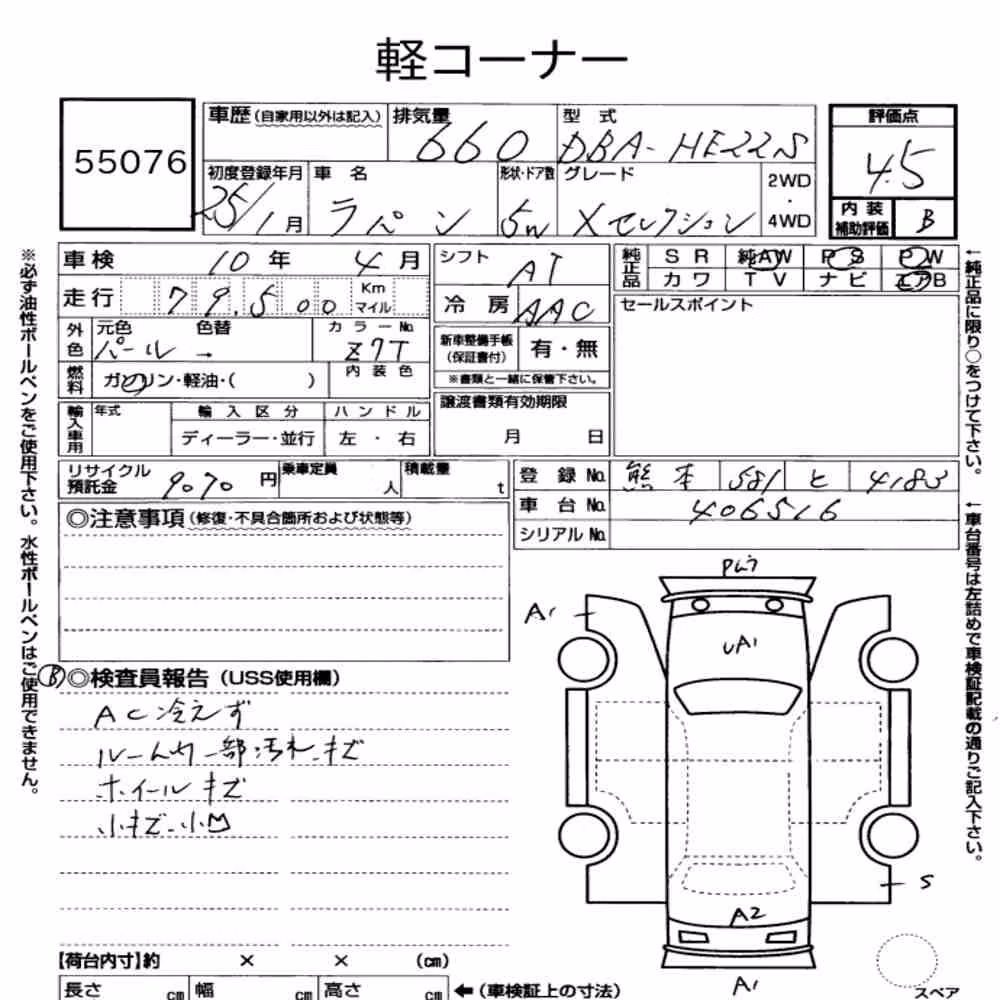 軽コーナー
55076
車歴 (自家用以外は記入)
排気量
660
型 式
DBA-HE22S
評価点
4.5
内装
補助評価
B
初度登録年月
25/1月
車 名
ラパン
形状・ドア数
5W
グレード
Xセレクション
2WD
・
4WD
車検 10年 4月
走行 79,500 Km
マイル
外色
元色
パール
色替
→
カラーNo.
Z7T
燃料
ガソリン・軽油・( )
内装色
輸入車用
年式
輸入区分
ディーラー・並行
ハンドル
左 ・ 右
シフト
AT
冷 房
AAC
新車整備手帳
(保証書付)
有・無
※書類と一緒に保管下さい。
譲渡書類有効期限
月 日
純正品
SR 純AW PS PW
カワ TV ナビ エアB
セールスポイント
リサイクル
預託金
9070円
乗車定員
人
積載量
t
登録No. 熊本 581 と 4183
車台No. 406516
シリアルNo.
◎注意事項 (修復・不具合箇所および状態等)
Ⓑ◎検査員報告 (USS使用欄)
AC冷えず
ルーム内一部汚れ、キズ
ホイールキズ
小キズ、小凹
A1
UA1
S
A2
A1
【荷台内寸】約 × × (cm)
長さ cm 幅 cm 高さ cm ←(車検証上の寸法)
スペア
※必ず油性ボールペンをご使用下さい。水性ボールペンはご使用できません。
←純正品に限り○をつけて下さい。
←車台番号は左詰めで車検証記載の通りご記入下さい。